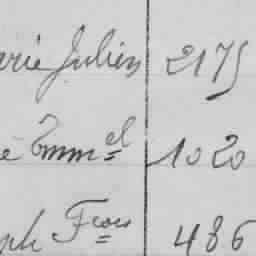 arie Julien 2175
é Emmel 1020
ph Frois 486